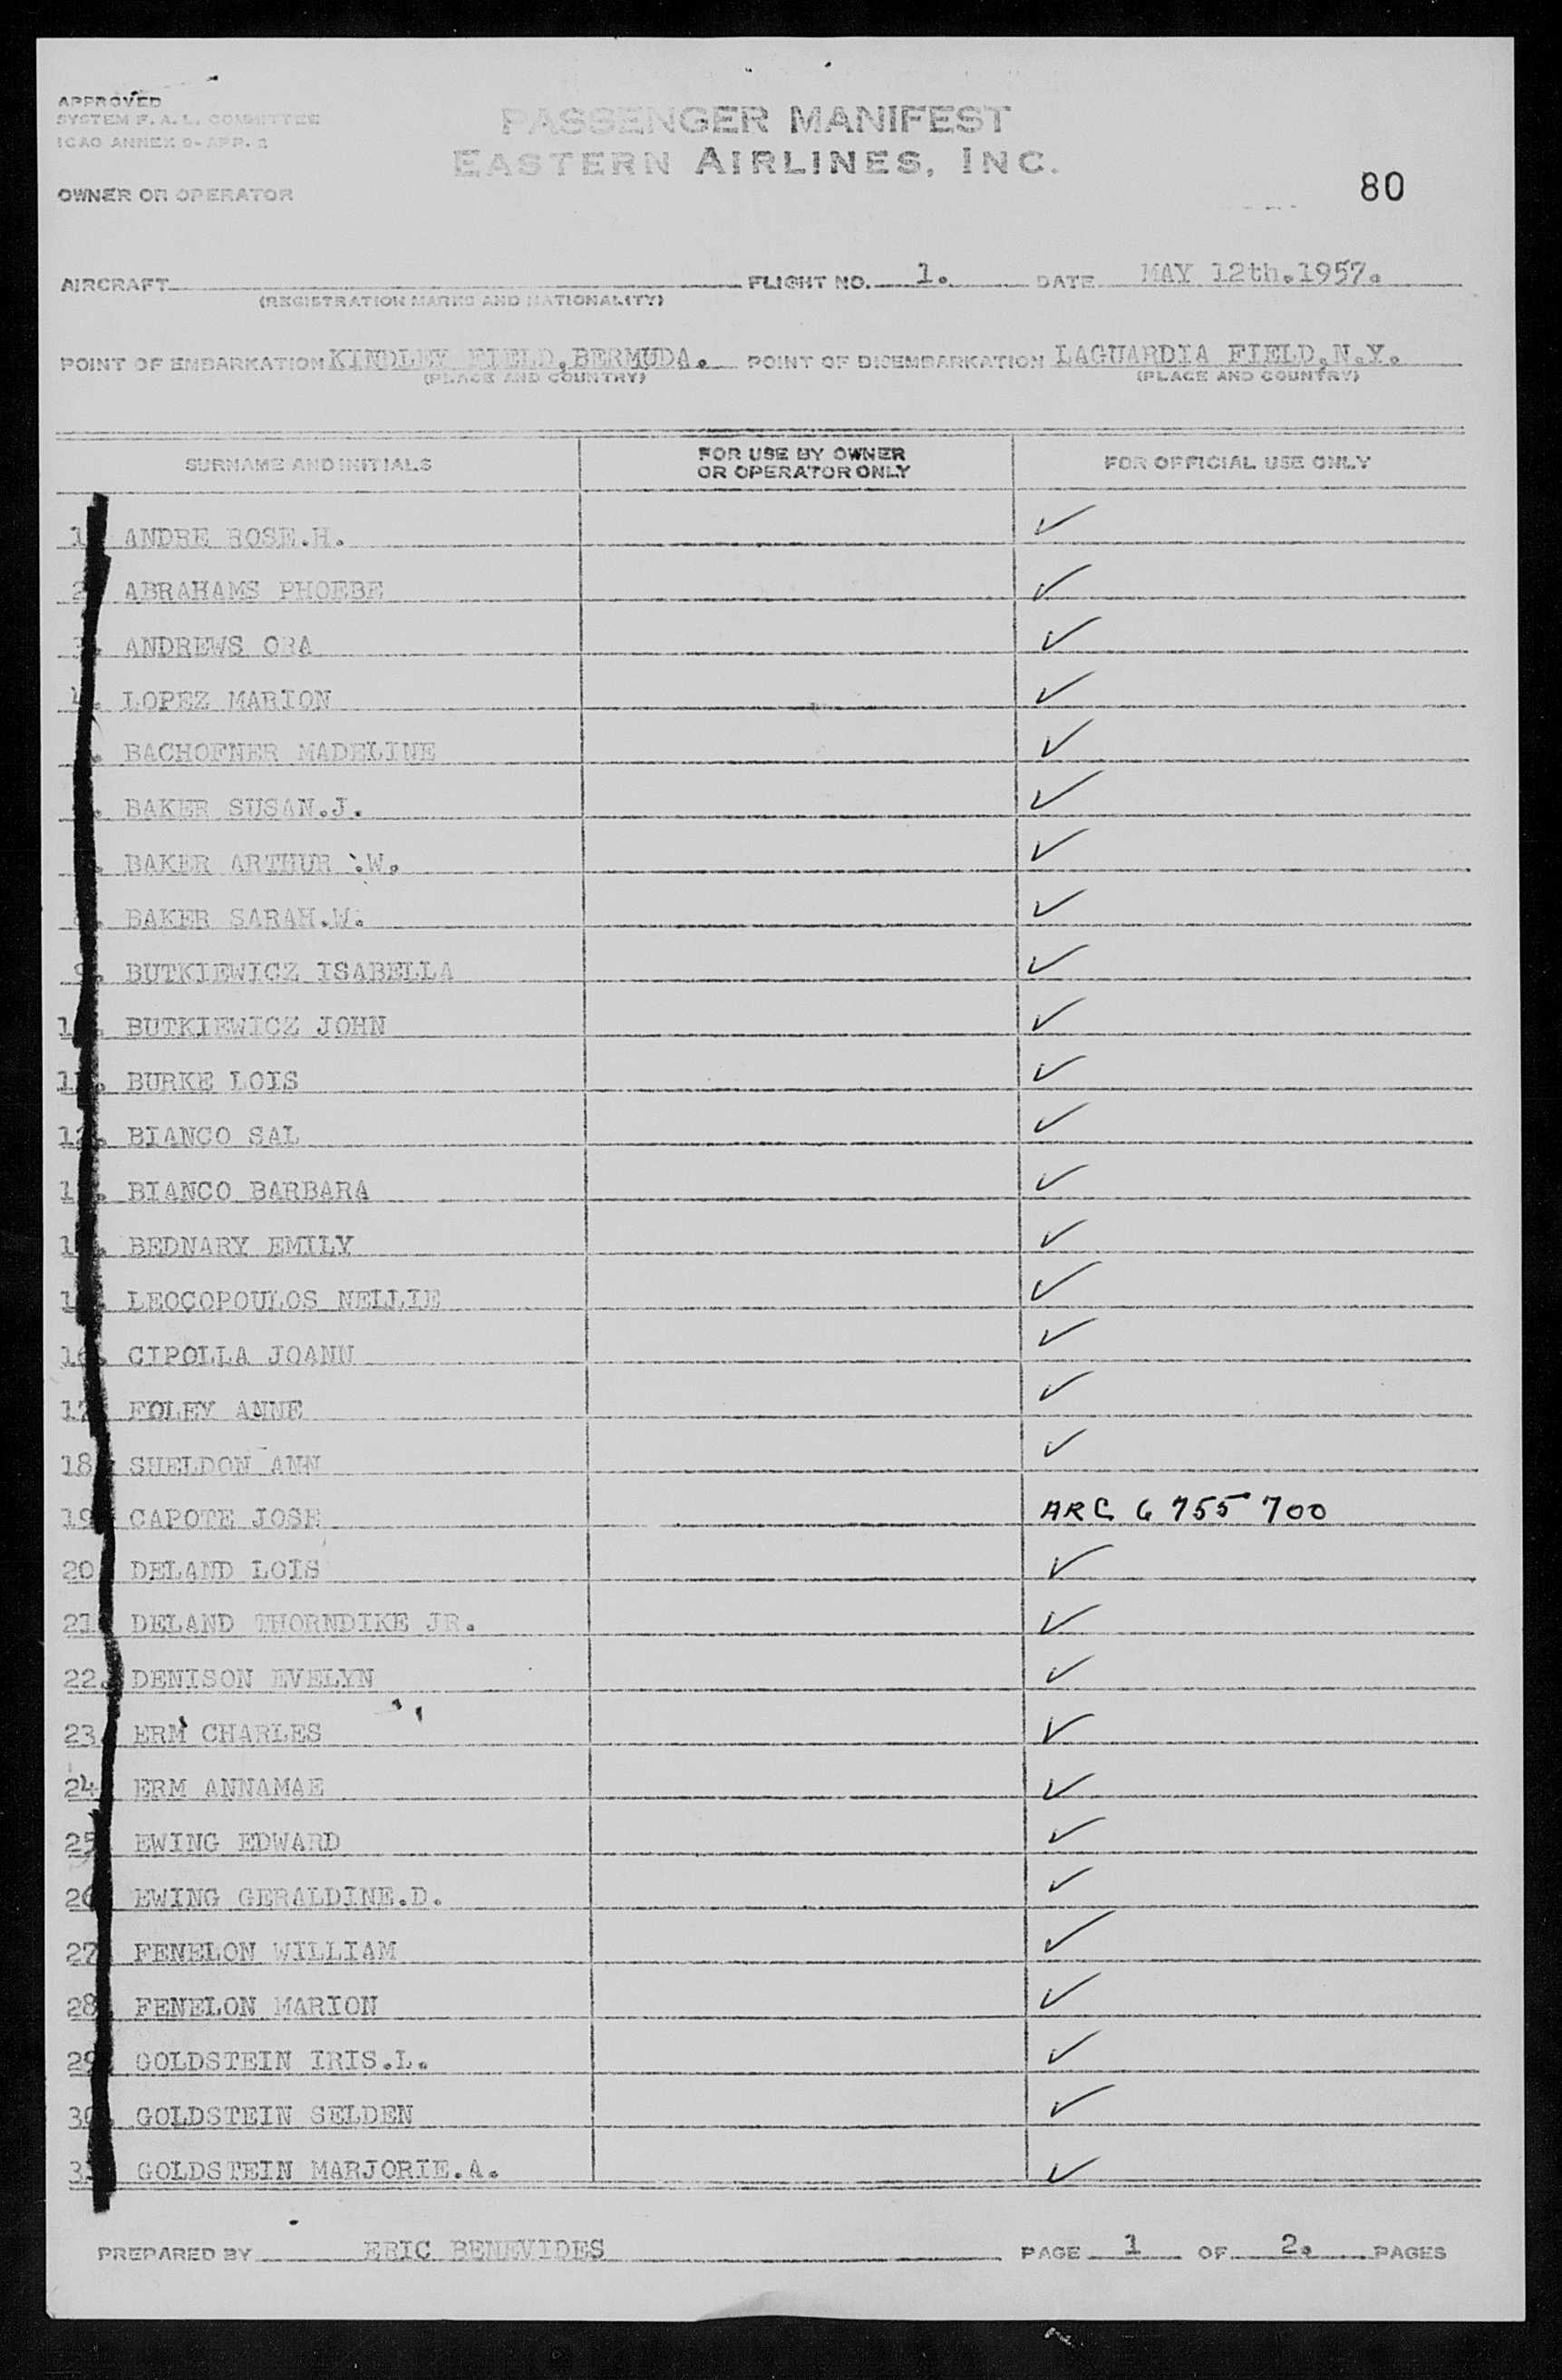 APPROVED
SYSTEM F. A. L. COMMITTEE
ICAO ANNEX 9-APP. 2
PASSENGER MANIFEST
EASTERN AIRLINES, INC.
OWNER OR OPERATOR
80
AIRCRAFT FLIGHT NO. 1. DATE MAY 12th.1957.
(REGISTRATION MARKS AND NATIONALITY)
POINT OF EMBARKATION KINDLEY FIELD,BERMUDA. POINT OF DISEMBARKATION LAGUARDIA FIELD,N.Y.
(PLACE AND COUNTRY) (PLACE AND COUNTRY)
SURNAME AND INITIALS FOR USE BY OWNER OR OPERATOR ONLY FOR OFFICIAL USE ONLY
1 ANDRE ROSE.H. ✓
2 ABRAHAMS PHOEBE ✓
3. ANDREWS ORA ✓
4. LOPEZ MARION ✓
. BACHOFNER MADELINE ✓
. BAKER SUSAN.J. ✓
. BAKER ARTHUR .W. ✓
. BAKER SARAH.W. ✓
9. BUTKIEWICZ ISABELLA ✓
1. BUTKIEWICZ JOHN ✓
11. BURKE LOIS ✓
12. BIANCO SAL ✓
1. BIANCO BARBARA ✓
1. BEDNARY EMILY ✓
1. LEOCOPOULOS NELLIE ✓
16. CIPOLLA JOANN ✓
17 FOLEY ANNE ✓
18 SHELDON ANN ✓
19 CAPOTE JOSE ARC 6 755 700
20 DELAND LOIS ✓
21 DELAND THORNDIKE JR. ✓
22. DENISON EVELYN ✓
23 ERM CHARLES ✓
24 ERM ANNAMAE ✓
25 EWING EDWARD ✓
26 EWING GERALDINE.D. ✓
27 FENELON WILLIAM ✓
28 FENELON MARION ✓
29 GOLDSTEIN IRIS.L. ✓
30. GOLDSTEIN SELDEN ✓
31 GOLDSTEIN MARJORIE.A. ✓
PREPARED BY ERIC BENEVIDES PAGE 1 OF 2. PAGES